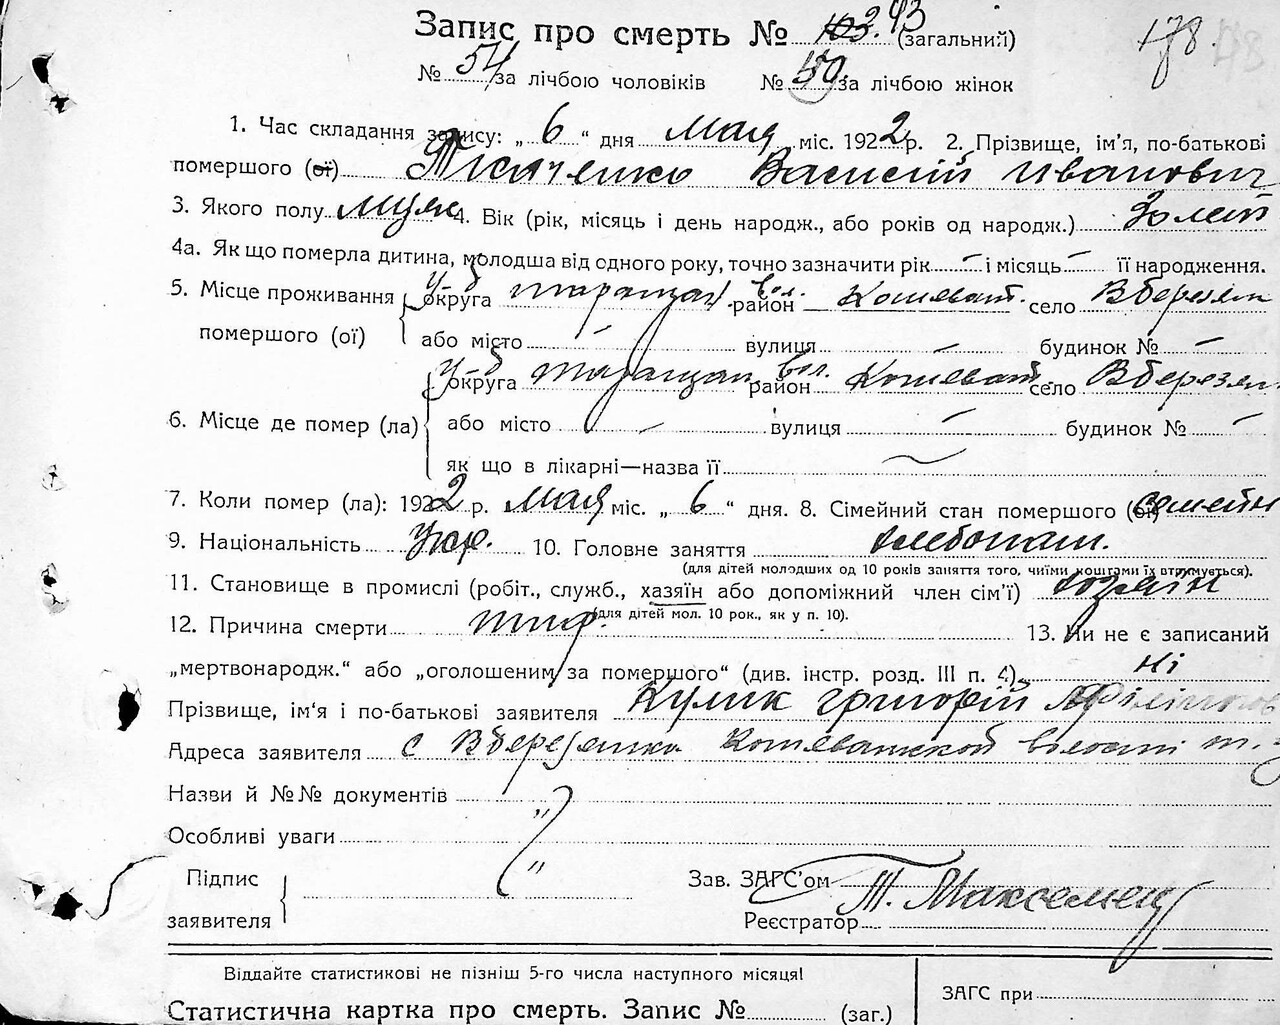 Запис про смерть № 103. 93 (загальний) 178.
№ 54 за лічбою чоловіків № 50. за лічбою жінок
1. Час складання запису: „ 6 “ дня Мая міс. 1922 р. 2. Прізвище, ім'я, по-батькові
помершого (ої) Василій Иванович
3. Якого полу муж 4. Вік (рік, місяць і день народж., або років од народж.) лет
4а. Як що померла дитина, молодша від одного року, точно зазначити рік — і місяць — її народження.
5. Місце проживання округа Таращан район вол. Кошеват. село Вберезян
помершого (ої) або місто — вулиця — будинок № —
округа Таращан район вол. Кошеват. село Вберезян
6. Місце де помер (ла) або місто — вулиця — будинок № —
як що в лікарні—назва її
7. Коли помер (ла): 1922 р. Мая міс. „ 6 “ дня. 8. Сімейний стан помершого (ої) семейн
9. Національність Укр. 10. Головне заняття хлебопаш.
(для дітей молодших од 10 років заняття того, чиїми коштами їх втримується).
11. Становище в промислі (робіт., служб., хазяїн або допоміжний член сім'ї) хозяин
(для дітей мол. 10 рок., як у п. 10).
12. Причина смерти тиф. 13. Чи не є записаний
„мертвонародж.“ або „оголошеним за помершого“ (див. інстр. розд. III п. 4) Ні
Прізвище, ім'я і по-батькові заявителя Кулик Григорій
Адреса заявителя с Вберезянка Кошеватской волости т. у
Назви й №№ документів „
Особливі уваги „
Підпис заявителя
Зав. ЗАГС'ом
Реєстратор Т. Максемец
Віддайте статистикові не пізніш 5-го числа наступного місяця!
Статистична картка про смерть. Запис № (заг.)
ЗАГС при